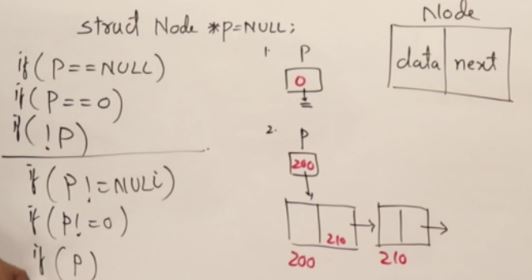 struct Node *p=NULL;
if(P==NULL)
if(P==0)
if(!P)
if(P!=NULL)
if(P!=0)
if(P)
1. P
0
2. P
200
210
200
210
Node
data next